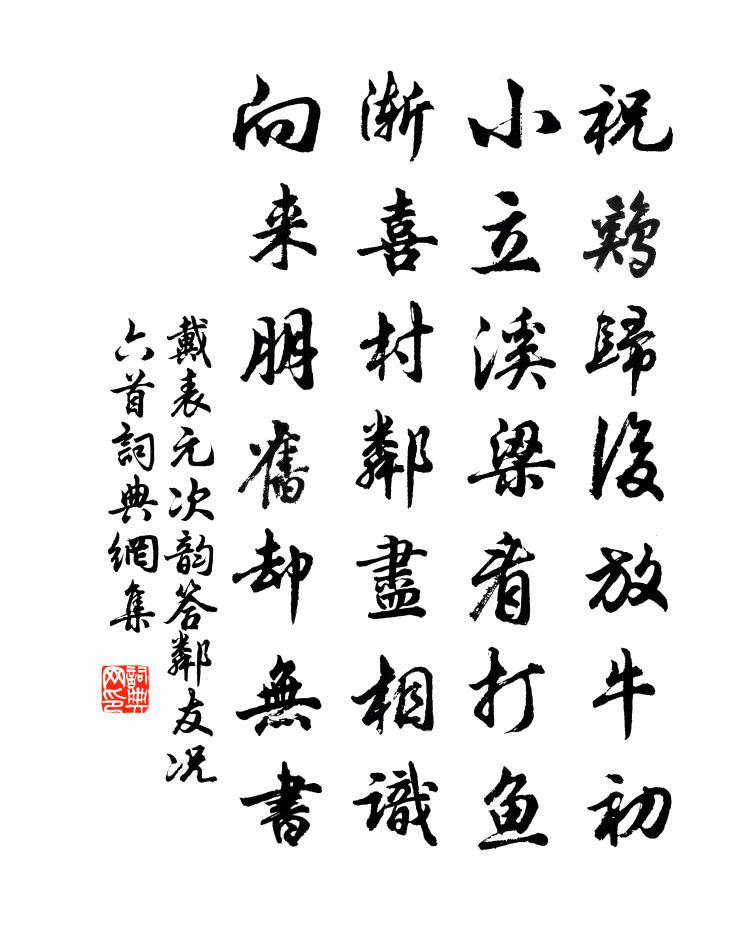 祝鷄歸後放牛初
小立溪梁看打魚
漸喜村鄰盡相識
向来朋舊却無書
戴表元次韵答鄰友况
六首詞典網集
詞典网印